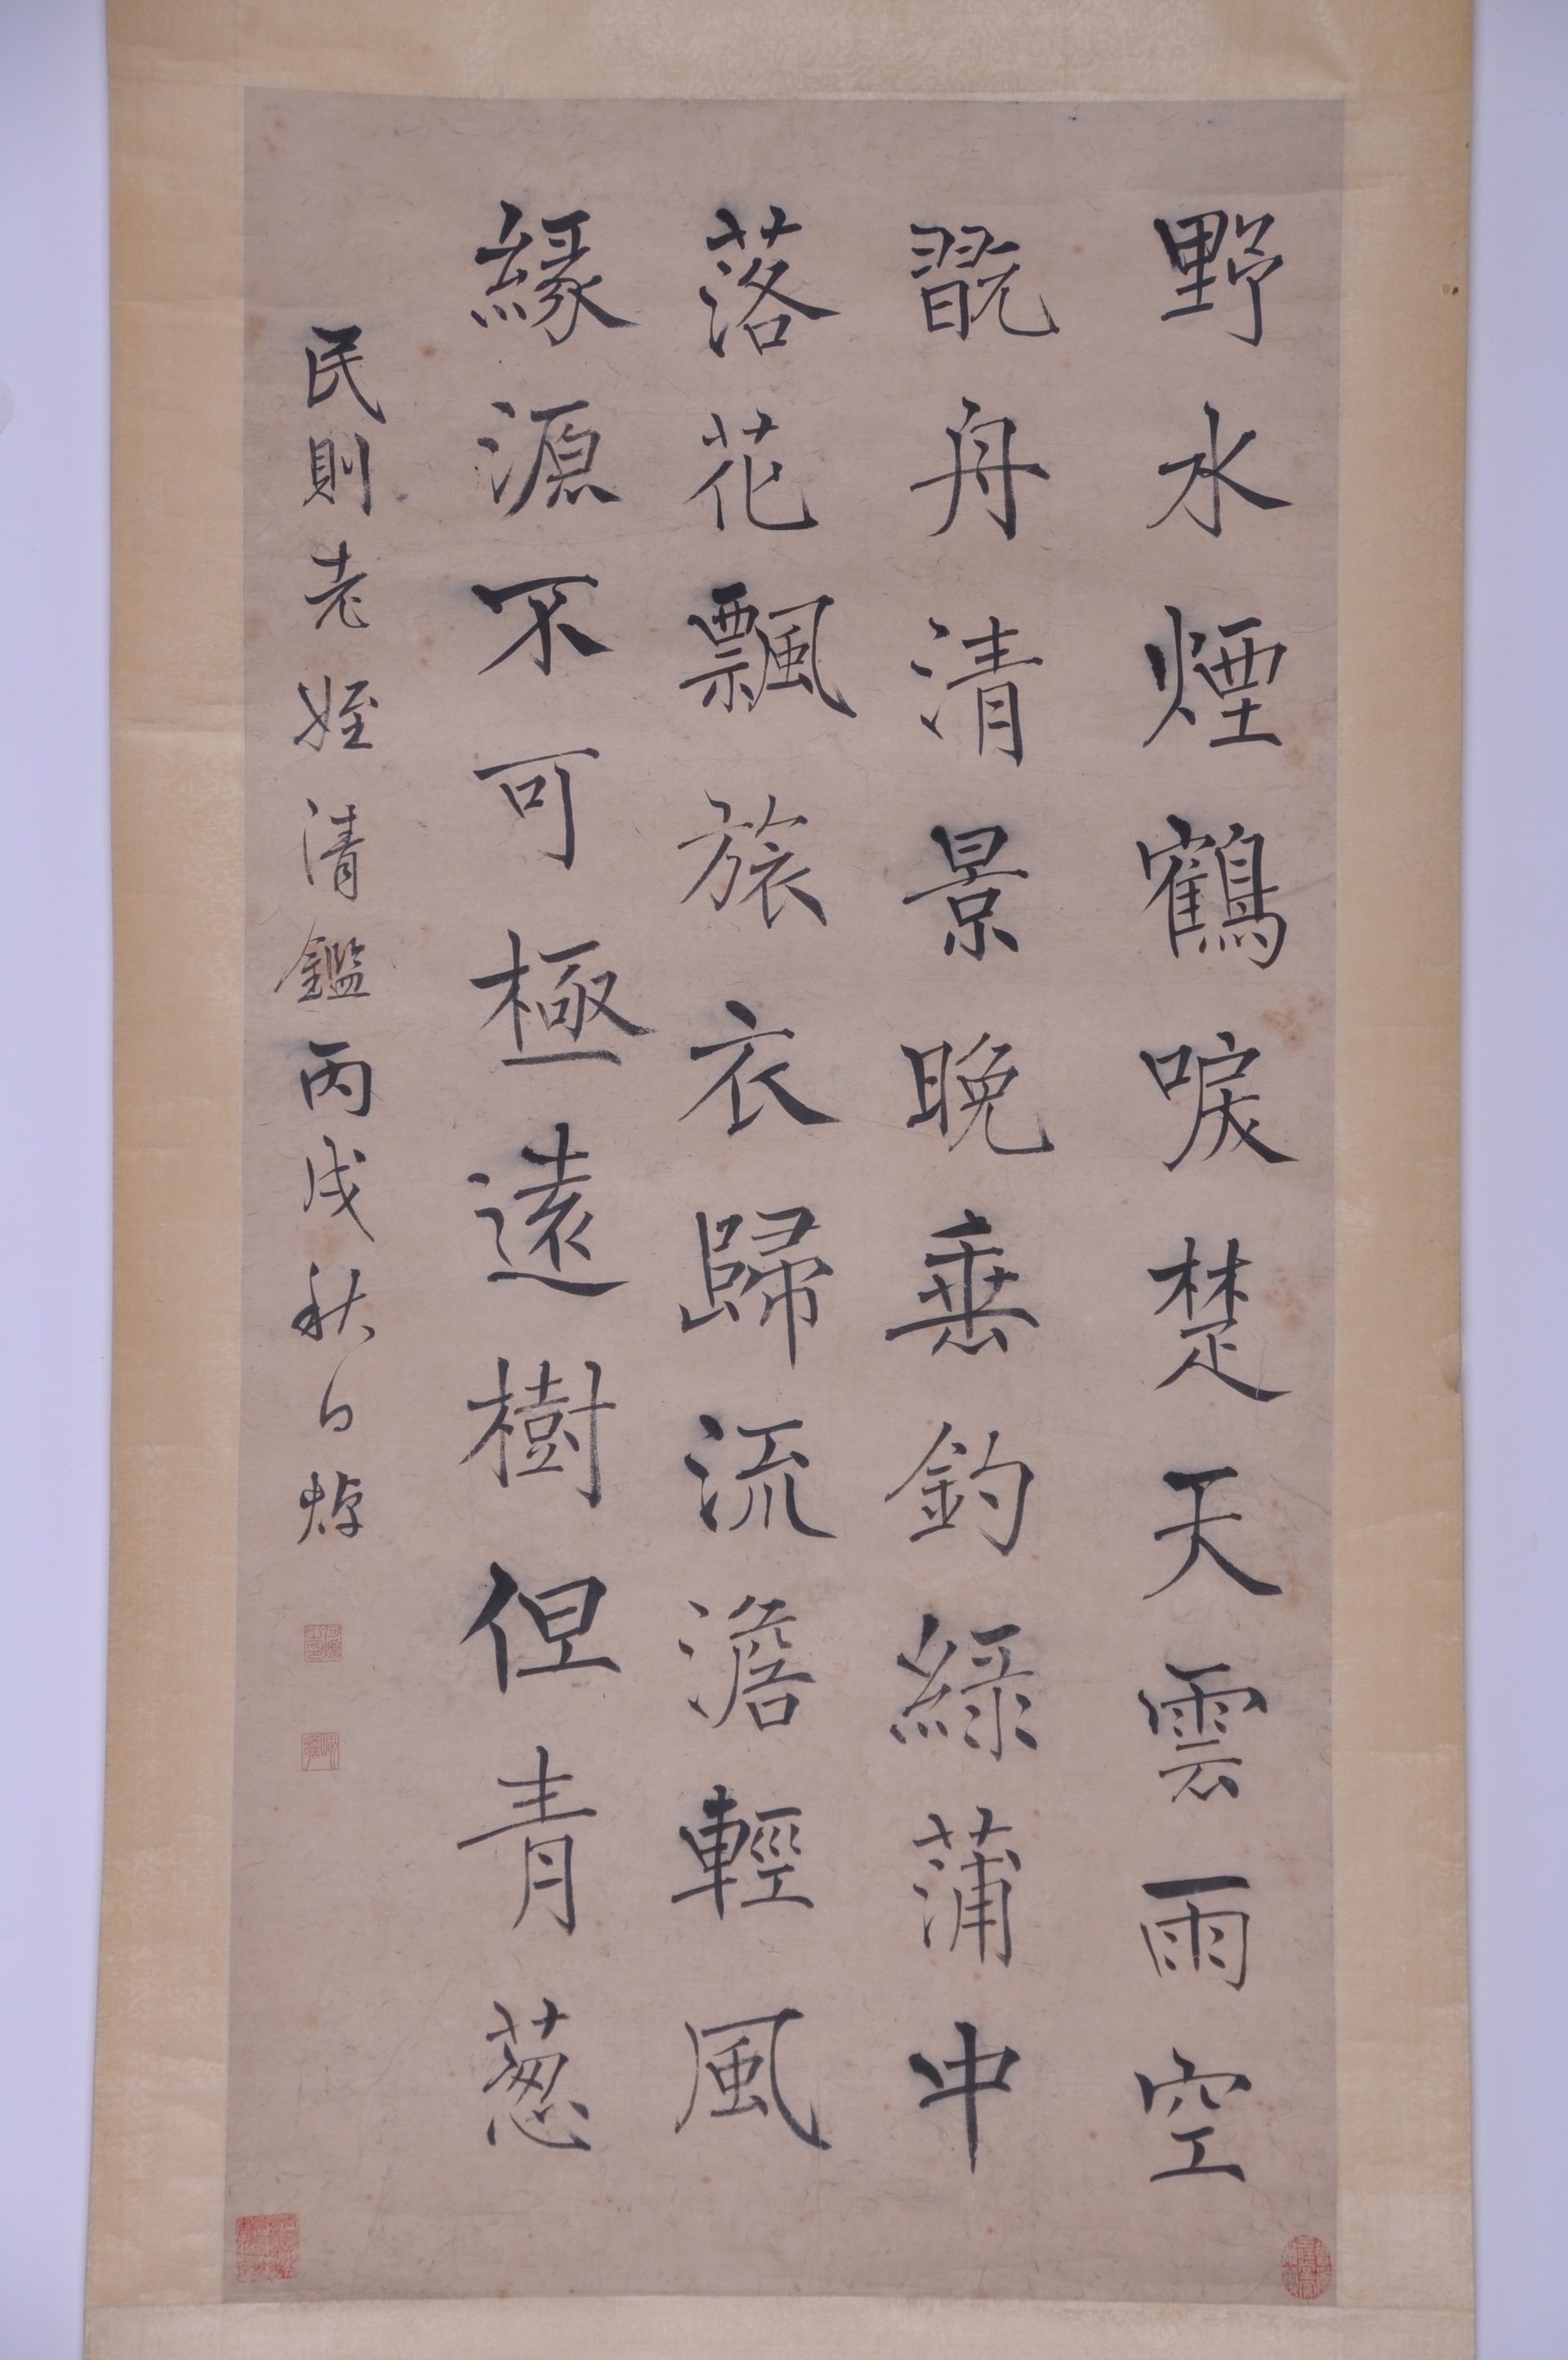 野水煙鶴唳楚天雲雨空
翫舟清景晚垂釣綠蒲中
落花飄旅衣歸流澹輕風
緣源不可極遠樹但青葱
民則老姪清鑑丙戌秋日焯